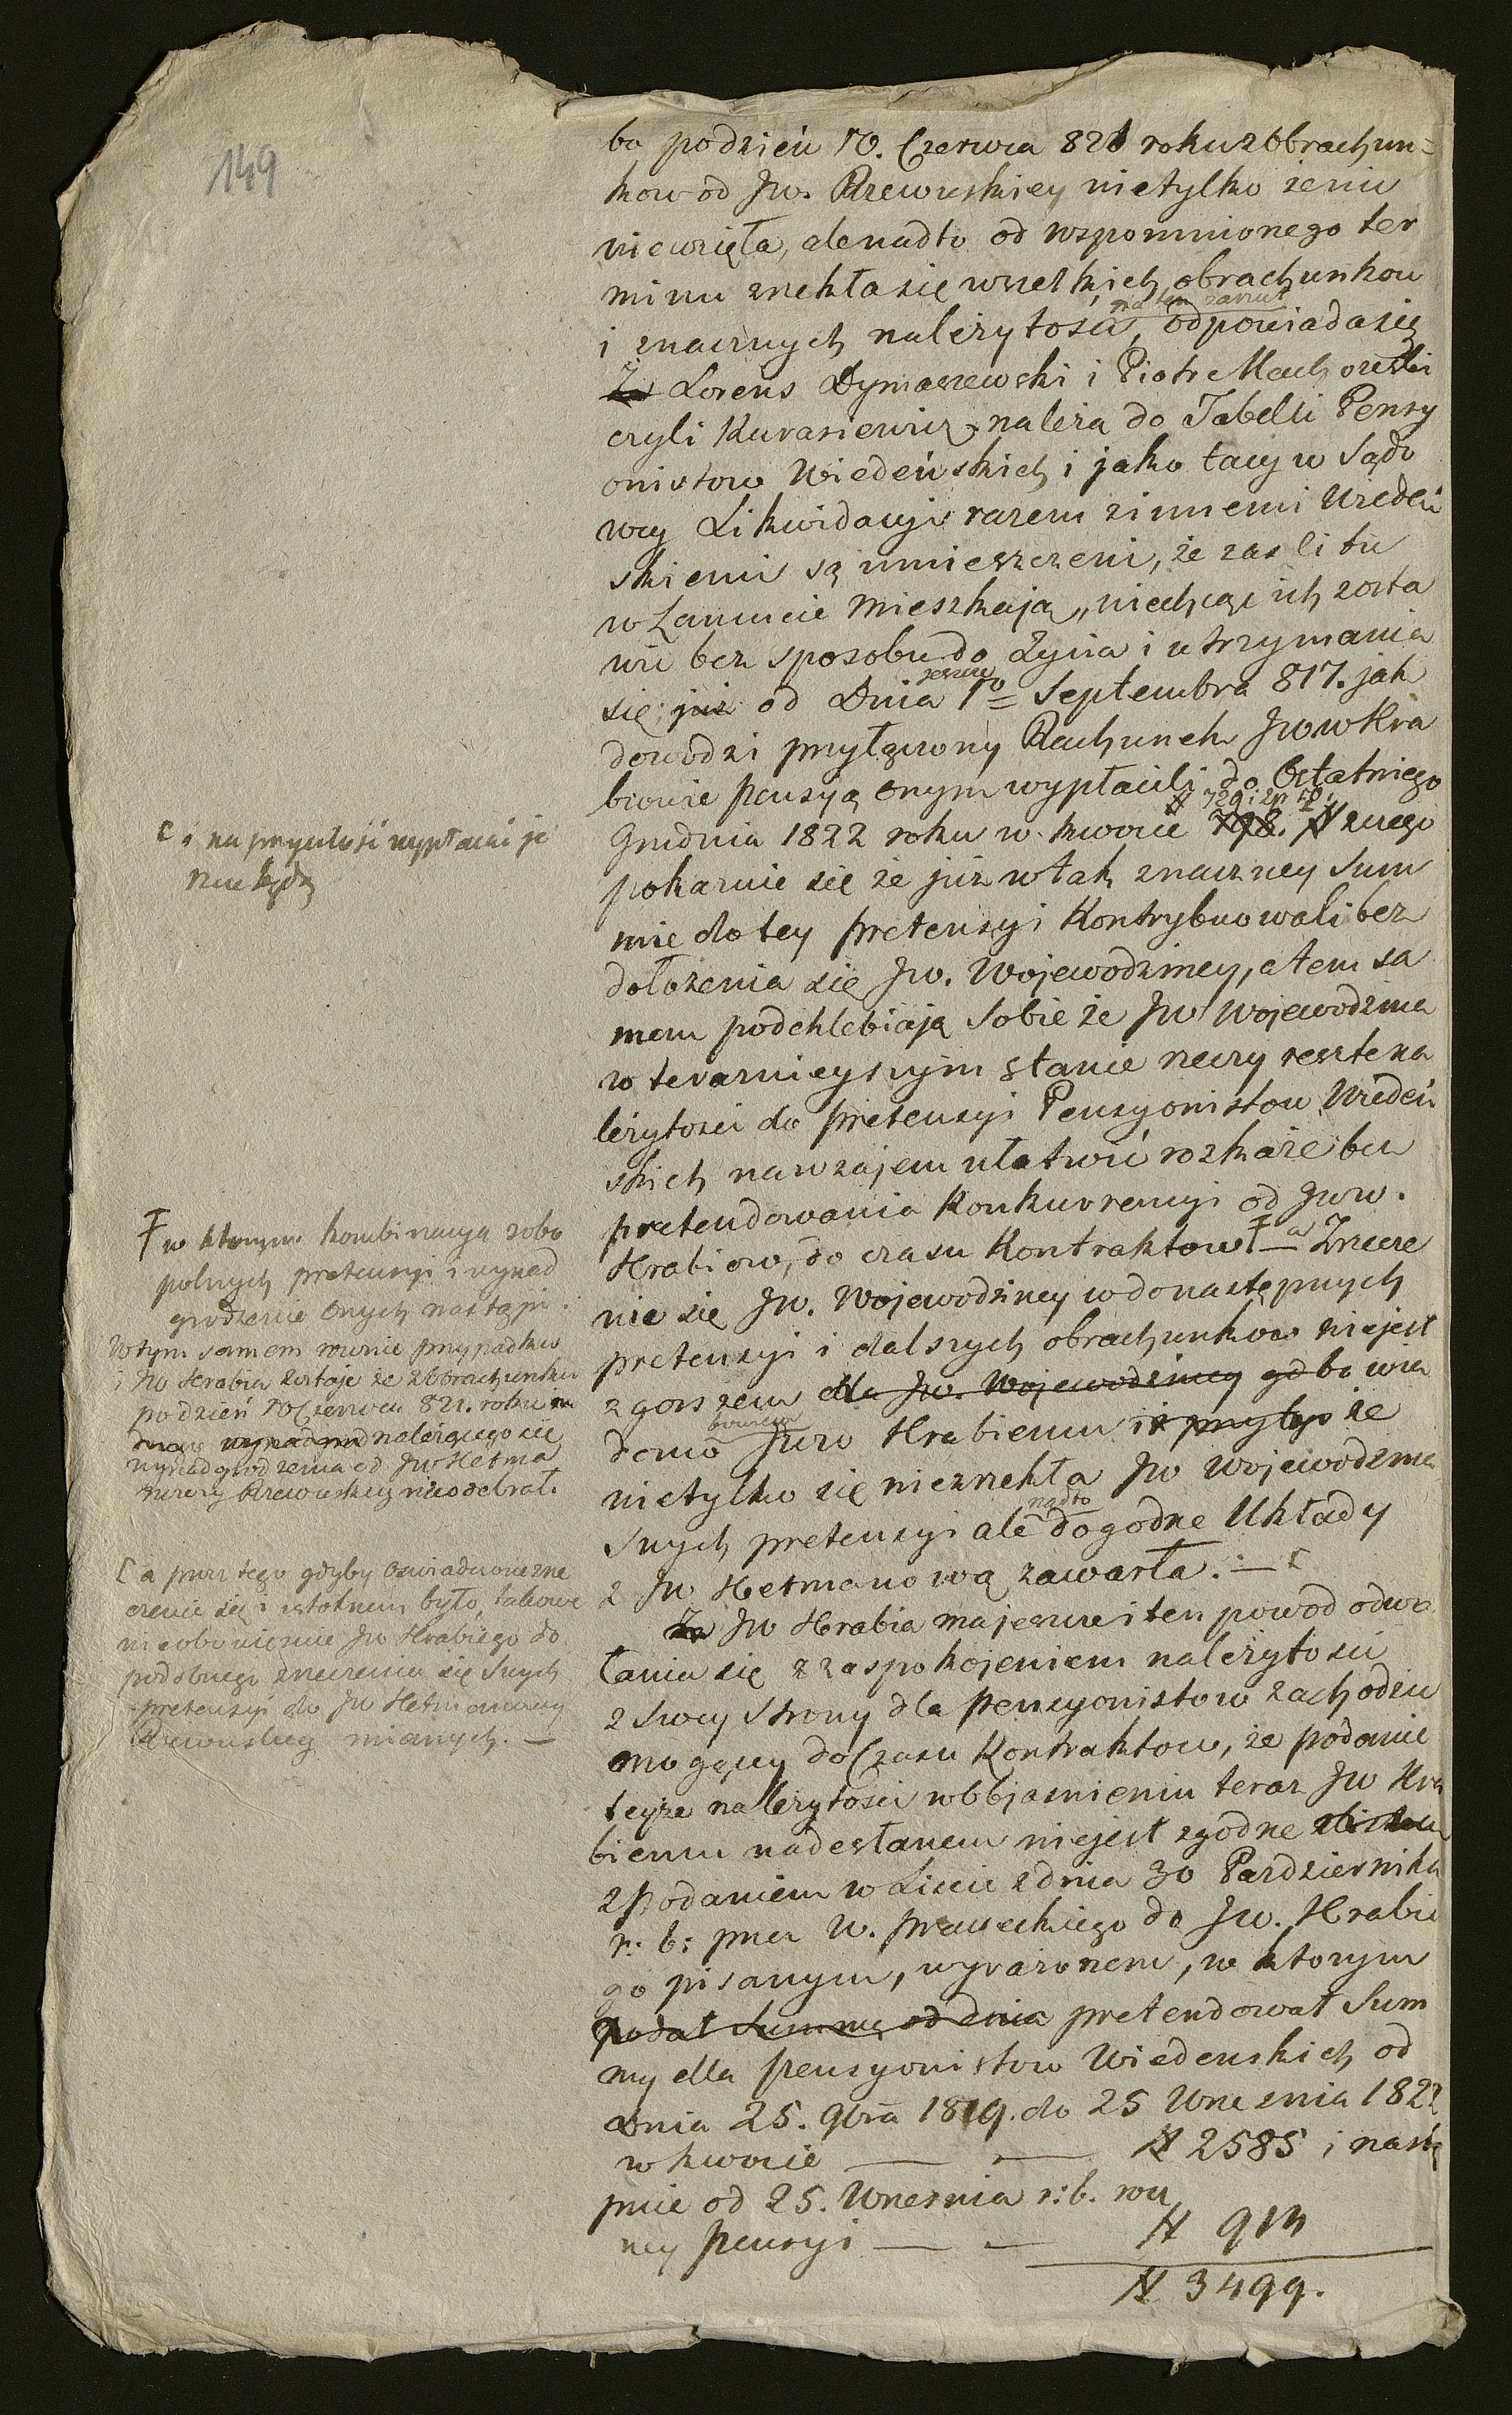 149
ba podzień 10. Czerwca 821 roku z Obrachun=
kow od Jw. Rzewuskiey nietylko żenic
niewzięła, alenadto od wspomnionego ter
minu zrzekła się wszelkich obrachunkow
na ten zarzut
i znacznych należytości, odpowiada się
Że Lorens Dymaszewski i Piotr Machorski
czyli Kurasiewicz, należą do Tabelli Pensy
onistow Wiedeńskich i jako tacy w Sądo
wey Likwidacyi razem zinnemi Wiedeń
skiemi są umieszczeni, że zaś li tu
w Łancucie mieszkają, niechcąc ich zosta
wić bez sposobu do Życia i utrzymania
jeszcze
się już od Dnia 1o Septembra 817. jak
dowodzi przyłączony Rachunek JwwHra
biowie pensyą onym wypłacili do Ostatniego
# 729 i zp 10
Grudnia 1822 roku w kwocie 798. # z czego
pokazuie się że już w tak znaczney Sum
mie do tey pretensyi Kontrybuowali bez
dołożenia się Jw. Wojewodziney, a tem sa
mem podchlebiają Sobie że Jw Wojewodzina
w teraznieyszym stanie rzeczy resztę na
leżytości do pretensyi Pensyonistow Wiedeń
skich nawzajem ułatwić rozkaże bez
pretendowania Konkurrencyi od Jww.
Hrabiow, do czasu Kontraktow Ŧ — a Zrzecze
nie się Jw. Wojewodziney wdonastępnych
pretensyi i dalszych obrachunkow niejest
zgorszem dla Jw. Wojewodziney gd bo wia
bowiem
domo Jww Hrabiemu iż przytys że
nietylko się niezrzekła Jw Wojewodzina
nadto
Swych pretensyi ale dogodne Układy
z Jw Hetmanową zawarła. — [
Że Jw Hrabia ma jeszcze i ten powod odwo
łania się z zaspokojeniem należytości
z Swey Strony dla pensyonistow zachodzić
mogącey do Czasu Kontraktow, że podanie
teyże należytości w Objasnieniu teraz Jw Hra
biemu nadesłanem niejest zgodne
z Podaniem w Liscie z dnia 30 Pazdziernika
r: b: przez W. Praweckiego do Jw. Hrabie
go pisanym, wyrażonem, w ktorym
podał Summę od dnia pretendował Sum
my dla pensyonistow Wiedenskich od
dnia 25. 9bra 1819. do 25 Wrzesnia 1822
w kwocie — — # 2585 i nastę
pnie od 25. Wrzesnia r: b. rocz
ney pensyi — — # 914
# 3499.
[ i na przyszłość wypłacać je
będą
Ŧ w ktorym kombinacya zobo
polnych pretensyi i wynad
grodzenie onych nastąpi.
W tym samem rownie przypadku
i Jw Hrabia zostaje że z Obrachunku
po dzień 10 Czerwca 821. roku
należącego się
wynadgrodzenia od Jw Hetma
nowey Rzewuskiey nieodebrał.
[ a przez tego gdyby oswiadczone zrze
czenie się istotnem było, takowe
nieobowiązuie Jw Hrabiego do
podobnego zrzeczenia się Swych
pretensyi do Jw Hetmanowey
Rzewuskiey mianych. —